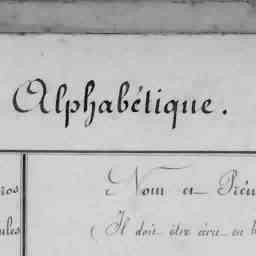 Alphabétique.
ros
Nom et Prén
ules
(Il doit être écrit en b